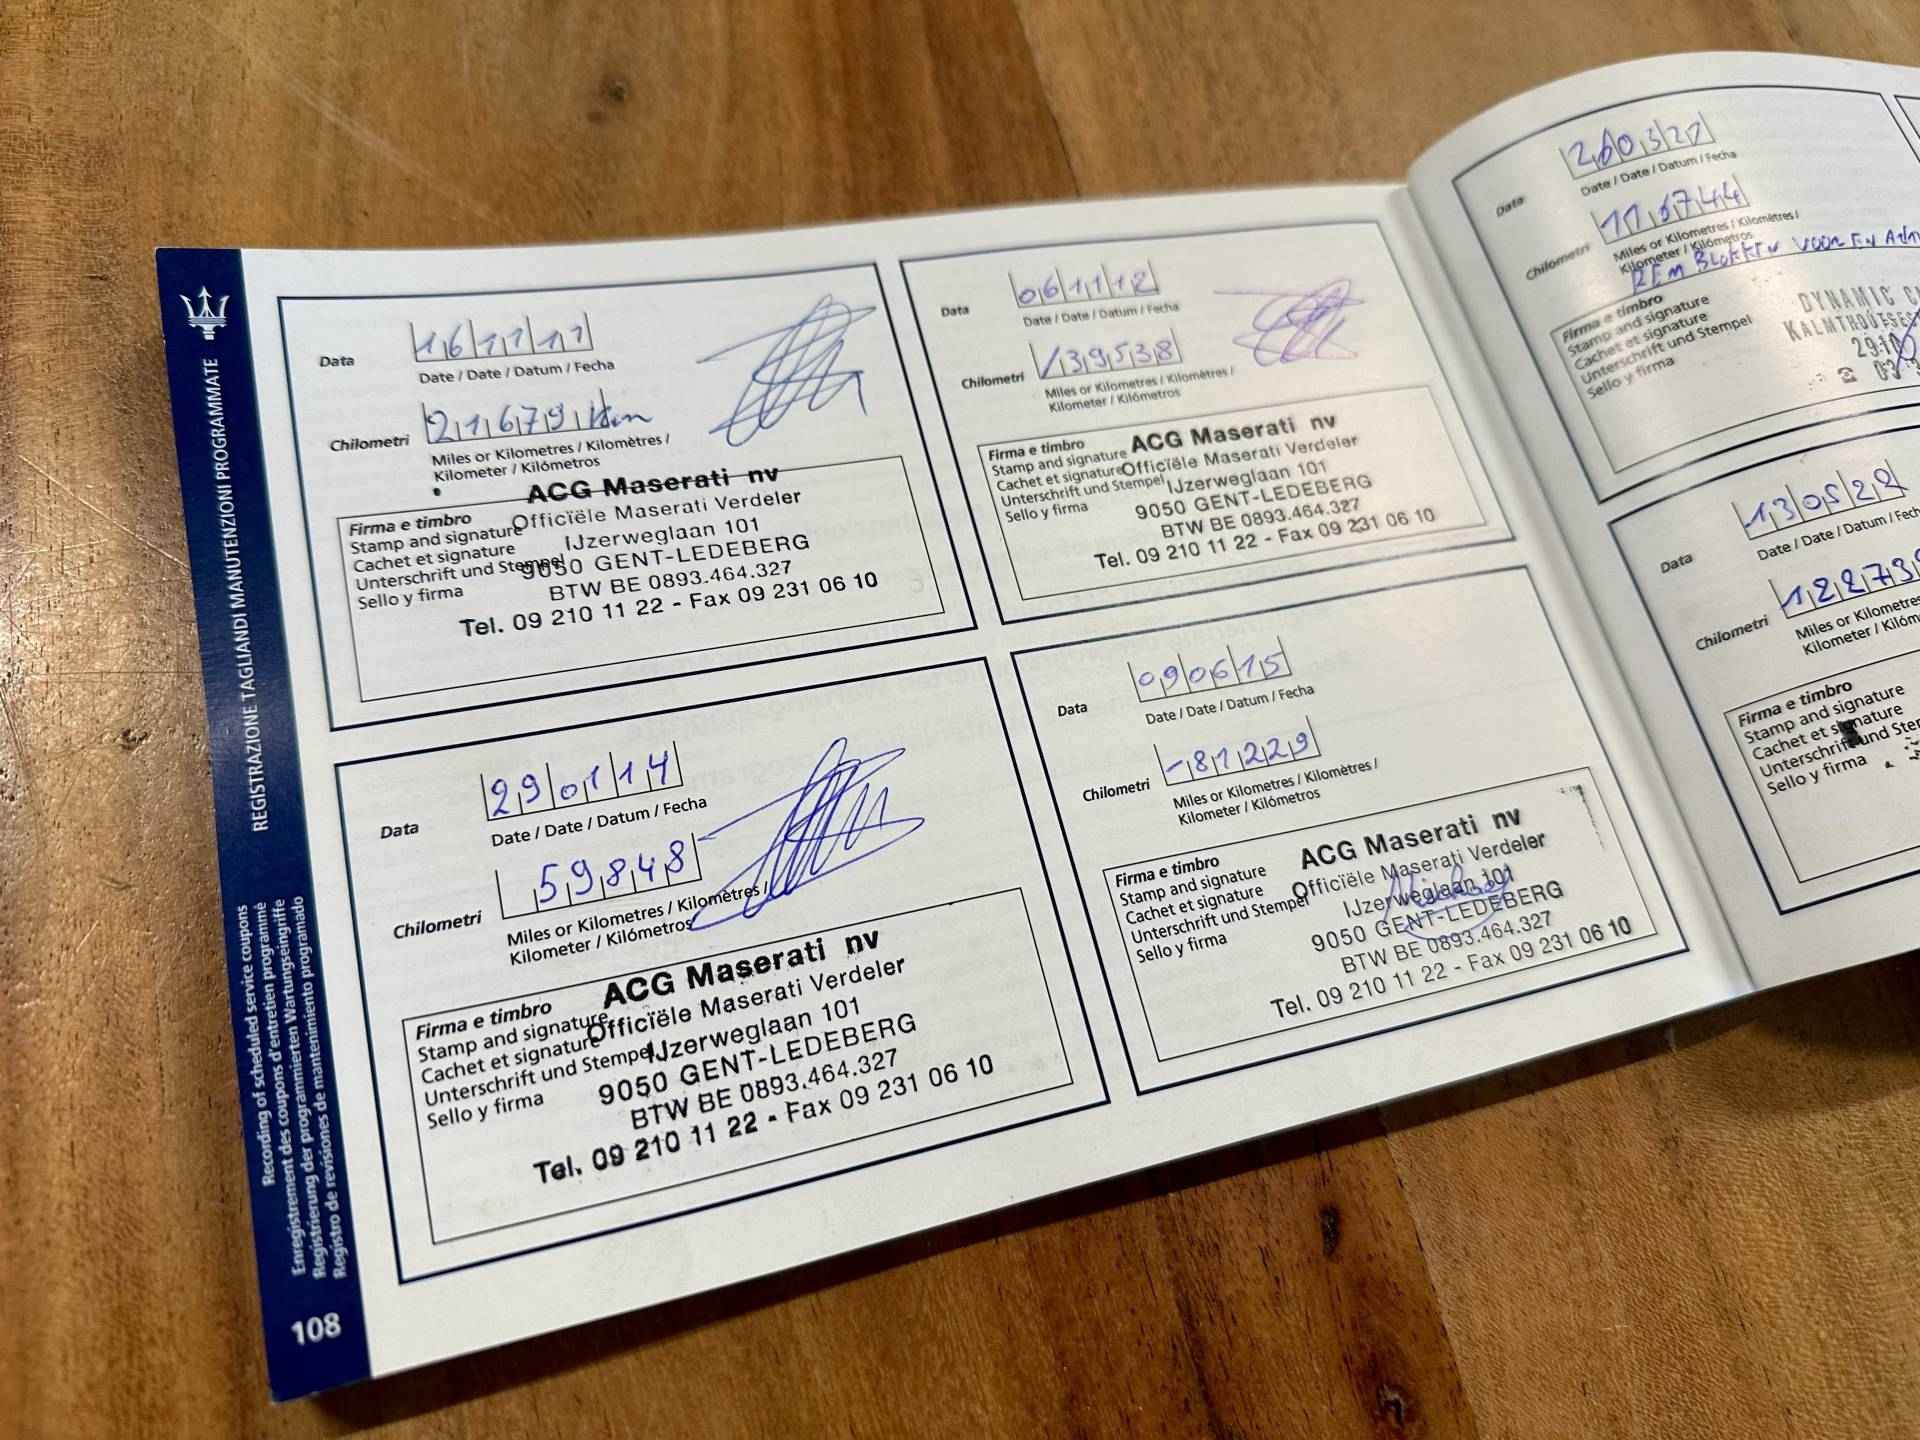 REGISTRAZIONE TAGLIANDI MANUTENZIONI PROGRAMMATE
Recording of scheduled service coupons
Enregistrement des coupons d'entretien programmé
Registrierung der programmierten Wartungseingriffe
Registro de revisiones de mantenimiento programado
108
Data
161111
Date / Date / Datum / Fecha
Chilometri
21679 Km
Miles or Kilometres / Kilomètres /
Kilometer / Kilómetros
Firma e timbro
Stamp and signature
Cachet et signature
Unterschrift und Stempel
Sello y firma
ACG Maserati nv
Officiële Maserati Verdeler
IJzerweglaan 101
9050 GENT-LEDEBERG
BTW BE 0893.464.327
Tel. 09 210 11 22 - Fax 09 231 06 10
Data
061112
Date / Date / Datum / Fecha
Chilometri
/39538
Miles or Kilometres / Kilomètres /
Kilometer / Kilómetros
Firma e timbro
Stamp and signature
Cachet et signature
Unterschrift und Stempel
Sello y firma
ACG Maserati nv
Officiële Maserati Verdeler
IJzerweglaan 101
9050 GENT-LEDEBERG
BTW BE 0893.464.327
Tel. 09 210 11 22 - Fax 09 231 06 10
Data
290114
Date / Date / Datum / Fecha
Chilometri
59848
Miles or Kilometres / Kilomètres /
Kilometer / Kilómetros
Firma e timbro
Stamp and signature
Cachet et signature
Unterschrift und Stempel
Sello y firma
ACG Maserati nv
Officiële Maserati Verdeler
IJzerweglaan 101
9050 GENT-LEDEBERG
BTW BE 0893.464.327
Tel. 09 210 11 22 - Fax 09 231 06 10
Data
090615
Date / Date / Datum / Fecha
Chilometri
-81229
Miles or Kilometres / Kilomètres /
Kilometer / Kilómetros
Firma e timbro
Stamp and signature
Cachet et signature
Unterschrift und Stempel
Sello y firma
ACG Maserati nv
Officiële Maserati Verdeler
IJzerweglaan 101
9050 GENT-LEDEBERG
BTW BE 0893.464.327
Tel. 09 210 11 22 - Fax 09 231 06 10
Data
260321
Date / Date / Datum / Fecha
Chilometri
Miles or Kilometres / Kilomètres /
Kilometer / Kilómetros
REMBLOKKEN VOOR EN
Firma e timbro
Stamp and signature
Cachet et signature
Unterschrift und Stempel
Sello y firma
DYNAMIC
Data
130522
Date / Date / Datum / Fech
Chilometri
12273
Miles or Kilometres
Kilometer / Kilóm
Firma e timbro
Stamp and signature
Cachet et signature
Unterschrift und Ste
Sello y firma